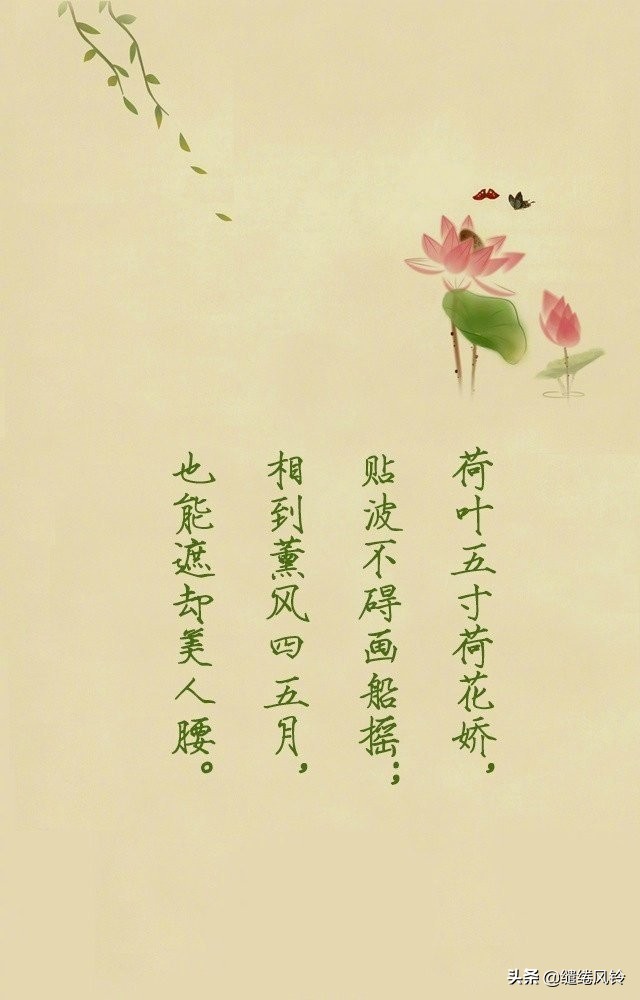 荷叶五寸荷花娇，
贴波不碍画船摇；
相到薰风四五月，
也能遮却美人腰。
头条 @缱绻风铃